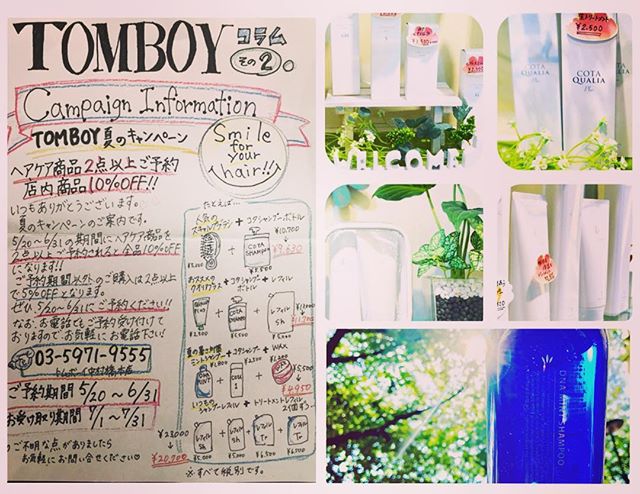 TOMBOY コラム その2。
Campaign Information
TOMBOY 夏のキャンペーン
Smile for your hair!!
ヘアケア商品2点以上ご予約
店内商品10%OFF!!
いつもありがとうございます。
夏のキャンペーンのご案内です。
5/20~6/31の期間にヘアケア商品を
2点以上ご予約されると全品10%OFF
になります!!
ご予約期間外のご購入は2点以上
で5%OFFとなります。
ぜひ5/20~6/31にご予約ください!!
なお、お電話でもご予約受け付けて
おりますので、お気軽にお電話下さい!
03-5971-9555
トムボーイ中村橋本店
ご予約期間 5/20~6/31
お受け取り期間 7/1~7/31
ご不明な点がありましたら
お気軽にお問い合せください
たとえば…
人気の
スキャルプブラシ + コタシャンプーボトル
¥10,700
¥9,630
COTA SHAMPOO
おススメの
+ コタシャンプーボトル + レフィル
レフィル Sh
夏の暑さ対策
ミントシャンプー + コタシャンプー + WAX
COTA
¥5,500
¥4,950
いつもの
シャンプーレフィル + トリートメントレフィル
2個ずつ…
¥23,000
¥20,700
レフィル Sh
レフィル Sh
レフィル Tr
レフィル Tr
※すべて税別です。
WELCOME
¥2,500
COTA
QUALIA
COTA
QUALIA
SHAMPOO